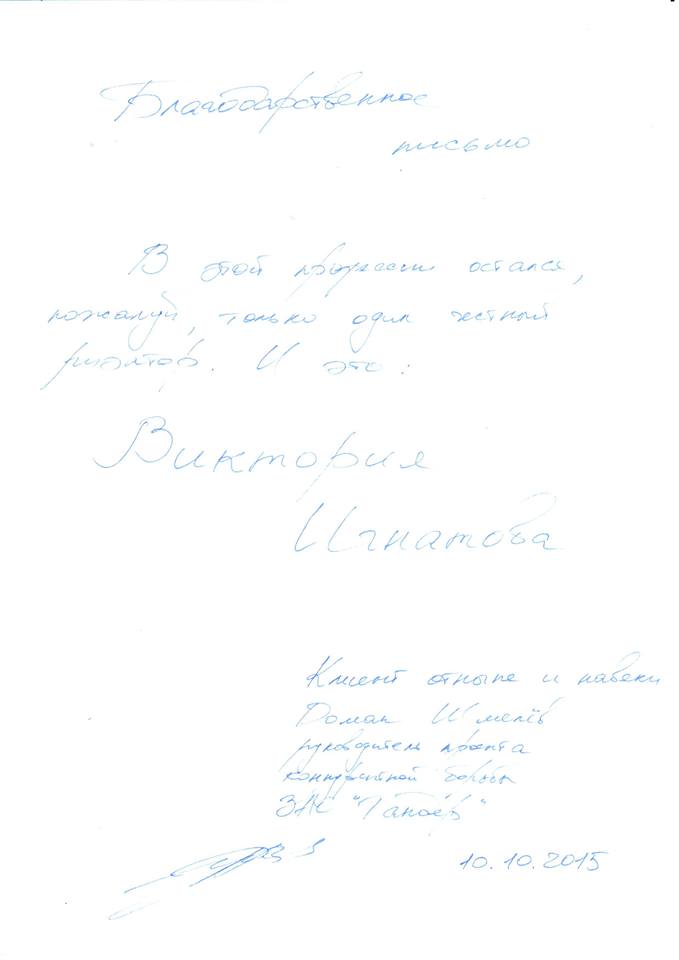 Благодарственное
письмо
В этой профессии остался,
пожалуй, только один честный
риэлтор. И это:
Виктория
Игнатова
Клиент отныне и навеки
Роман Шмелёв
руководитель проекта
конкурентной борьбы
ЗАО
10.10.2015